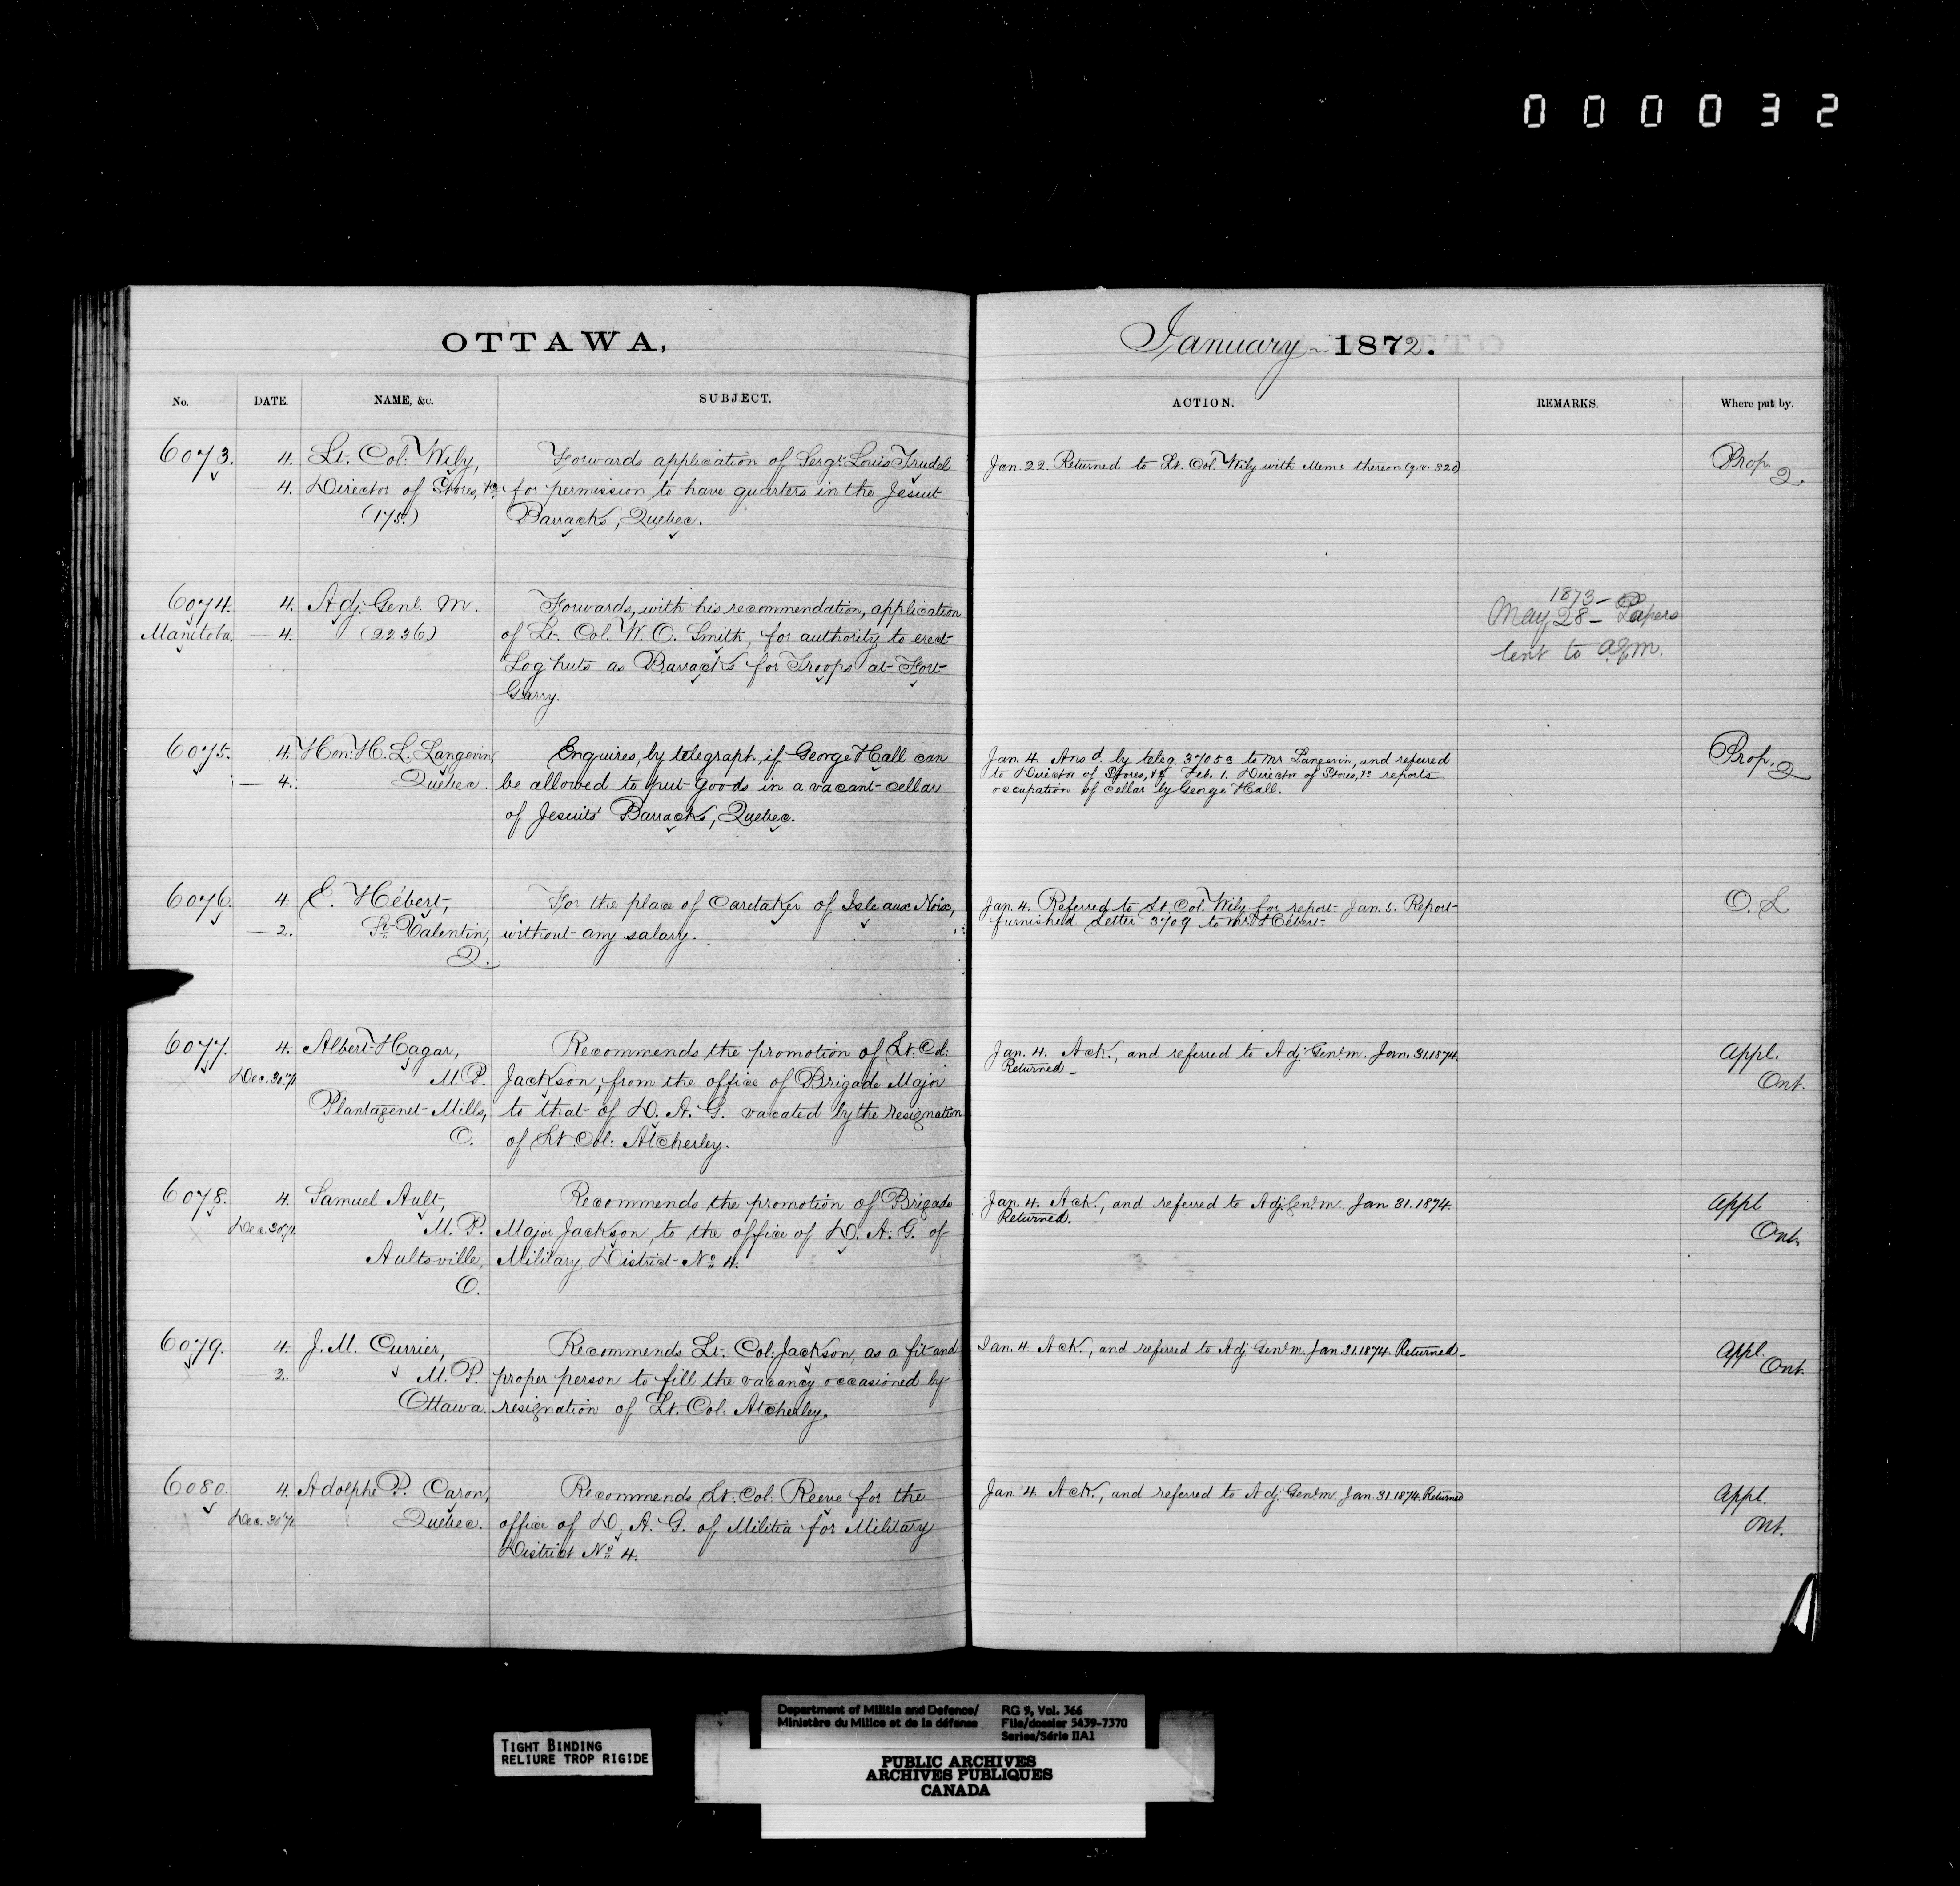 000032
OTTAWA,
January 1872.
No. DATE. NAME, &c. SUBJECT. ACTION. REMARKS. Where put by.
6073. 4. Lt. Col. Wily, Forwards application of Sergt. Louis Trudel Jan. 22. Returned to Lt. Col. Wily with Memo thereon (q.v. 320) Prop.
— 4. Director of Stores, &c. for permission to have quarters in the Jesuit Q.
(175.) Barracks, Quebec.
6074. 4. Adj. Genl. M. Forwards, with his recommendation, application 1873 —
Manitoba. — 4. (2236) of Lt. Col. W. O. Smith, for authority to erect May 28 — Papers
Log huts as Barracks for Troops at Fort lent to A.G.M.
Garry.
6075. 4. Hon: H. L. Langevin, Enquires, by telegraph, if George Hall can Jan. 4 Ansd. by teleg. 3705a to Mr Langevin, and referred Prop. Q
— 4. Quebec. be allowed to put goods in a vacant cellar to Director of Stores, &c. Feb. 1. Director of Stores, &c. reports
of Jesuits' Barracks, Quebec. occupation of cellar by George Hall.
6076. 4. E. Hébert, For the place of Caretaker of Isle aux Noix, Jan. 4. Referred to Lt. Col. Wily for report. Jan. 5. Report O. L.
— 2. St. Valentin, without any salary. furnished. Letter 3709 to Mr. Hébert.
Q.
6077. 4. Albert Hagar, Recommends the promotion of Lt. Col: Jan. 4. Ack., and referred to Adj. Genl. M. Jan. 31. 1874. Appl.
Dec. 30/71 M. P. Jackson, from the office of Brigade Major Returned — Ont.
Plantagenet Mills, to that of D. A. G. vacated by the resignation
O. of Lt. Col: Atcherley.
6078. 4. Samuel Ault, Recommends the promotion of Brigade Jan. 4. Ack., and referred to Adj. Genl. M. Jan 31. 1874. Appl
Dec. 30/71. M. P. Major Jackson, to the office of D. A. G. of Returned. Ont.
Aultsville, Military District No. 4.
O.
6079. 4. J. M. Currier, Recommends Lt. Col: Jackson, as a fit and Jan. 4. Ack., and referred to Adj. Genl. M. Jan 31. 1874. Returned — Appl.
— 2. M. P. proper person to fill the vacancy occasioned by Ont.
Ottawa. resignation of Lt. Col: Atcherley.
6080. 4. Adolphe P. Caron, Recommends Lt. Col. Reeve for the Jan. 4. Ack., and referred to Adj. Genl. M. Jan. 31. 1874. Returned Appl.
Dec. 30/71 Quebec. office of D. A. G. of Militia for Military Ont.
District No. 4.
TIGHT BINDING
RELIURE TROP RIGIDE
Department of Militia and Defence/ RG 9, Vol. 366
Ministère du Milice et de la défense File/dossier 5439-7370
Series/Série IIA1
PUBLIC ARCHIVES
ARCHIVES PUBLIQUES
CANADA